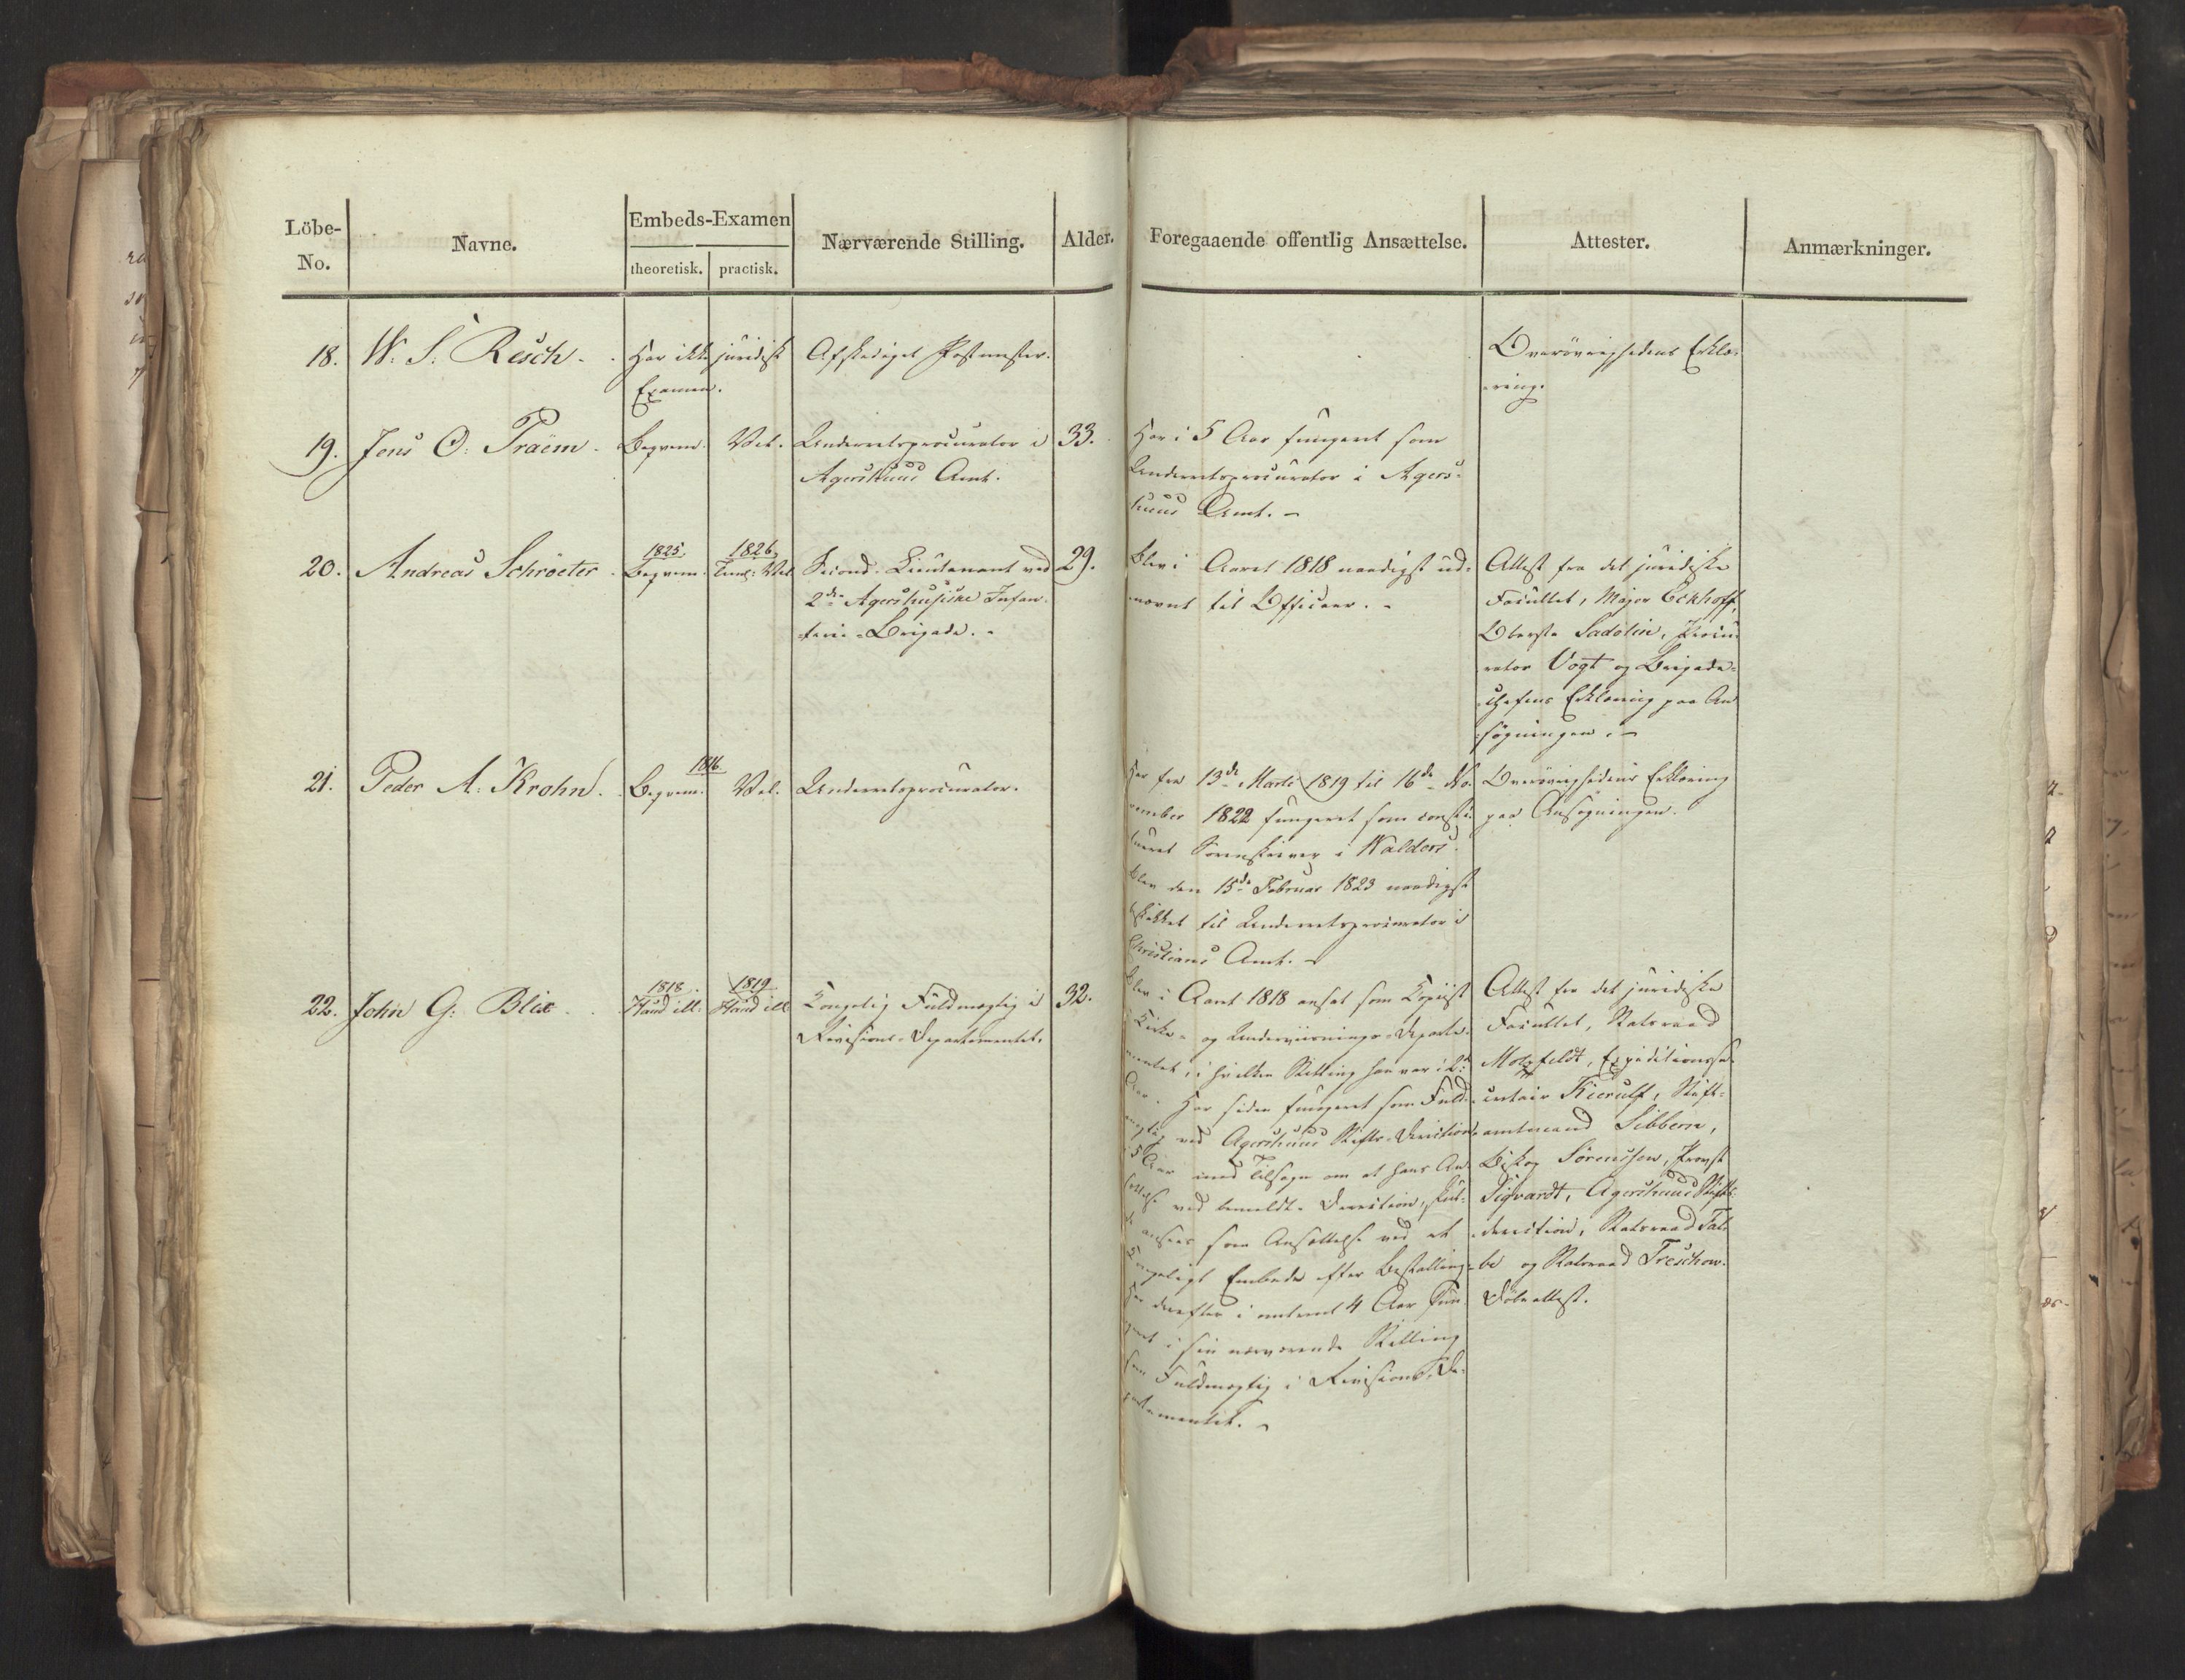 Löbe-
No.
Navne.
Embeds-Examen
theoretisk. practisk.
Nærværende Stilling.
Alder.
Foregaaende offentlig Ansættelse.
Attester.
Anmærkninger.
18. W. S. Resch.
Har ikke juridisk
Examen.
Afskediget Postmester.
Overövrighedens Erklæ-
ring.
19. Jens O. Praëm.
Beqvem. Vel.
Underretsprocurator i
Agershuus Amt.
33.
Har i 5 Aar fungeret som
Underretsprocurator i Agers-
huus Amt.
20. Andreas Schröeter
1825. 1826.
Beqvem. Vel
Second-Lieutenant ved
2den Agershusiske Infan-
terie-Brigade.
29.
Blev i Aaret 1818 naadigst ud-
nævnt til Officeer.
Attest fra det juridiske
Facultet, Major Eckhoff,
Oberste Sadolin, Procu-
rator Vogt og Brigade-
chefens Erklæring paa An-
søgningen.
21. Peder A. Krohn.
1816.
Beqvem. Vel.
Underretsprocurator.
Har fra 13de Marts 1819 til 16de No-
vember 1822 fungeret som consti-
tueret Sorenskriver i Walders.
Blev den 15de Februar 1823 naadigst
beskikket til Underretsprocurator i
Christians Amt.
Overövrighedens Erklæring
paa Ansøgningen.
22. John G. Blix
1818. 1819.
Haud ill. Haud ill.
Kongelig Fuldmægtig i
Revisions-Departementet.
32.
Blev i Aaret 1818 ansat som Copiist
i Kirke- og Underviisnings-Departe-
mentet, i hvilken Stilling han var i 2
Aar. Har siden fungeret som Fuld-
mægtig ved Agershuus Stifts-Direction
i 5 Aar med Tilsagn om at hans An-
sættelse ved bemeldte Direction, skul-
de ansees som Ansættelse ved et
Kongeligt Embede efter Bestalling.
Har derefter i omtrent 4 Aar fun-
geret i sin nærværende Stilling
som Fuldmægtig i Revisions-De-
partementet.
Attest fra det juridiske
Facultet, Statsraad
Motzfeldt, Expeditionsse-
cretair Kierulf, Stift-
amtmand Sibbern,
Biskop Sörenssen, Provst
Sigvardt, Agershuus Stifts-
direction, Statsraad Fas-
be og Statsraad Treschow.
Döbeattest.